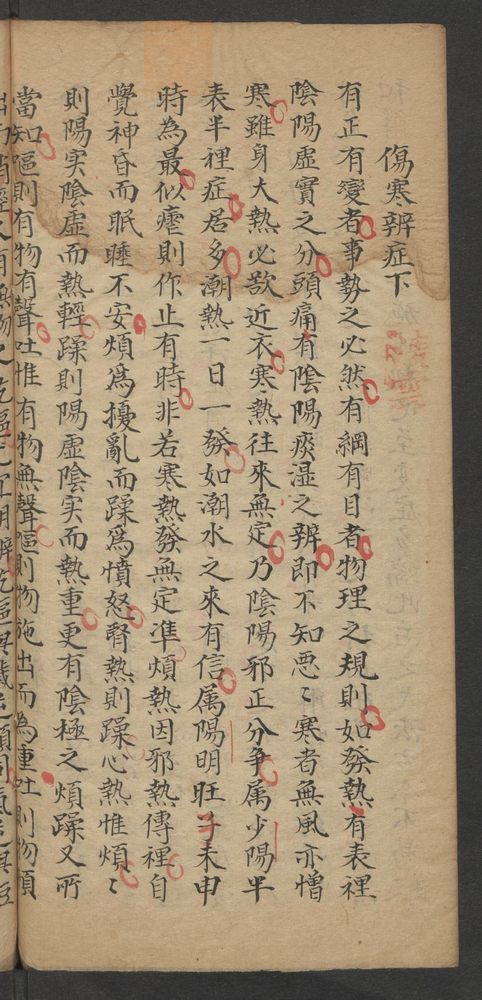 傷寒辨症下
有正有變者事勢之必然有綱有目者物理之規則如發熱有表裡
陰陽虛實之分頭痛有陰陽痰湿之辨即不知惡〻寒者無風亦憎
寒雖身大熱必欲近衣寒熱往來無定乃陰陽邪正分争属少陽半
表半裡症居多潮熱一日一發如潮水之來有信属陽明旺于未申
時為最似瘧則作止有時非若寒熱發無定準煩熱因邪熱傳裡自
覺神昏而眠睡不安煩為擾亂而躁為憤怒腎熱則躁心熱惟煩〻
則陽实陰虛而熱輕躁則陽虛陰实而熱重更有陰極之煩躁又所
當知嘔則有物有聲吐惟有物無聲嘔則物施出而為重吐則物順